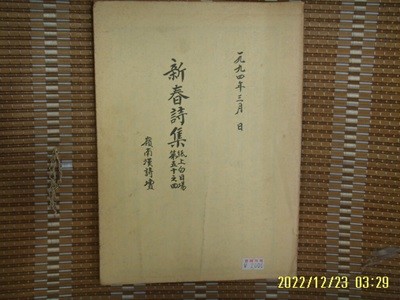 一九九四年 三月 日
新春詩集
紙上白日場
第五十六回
嶺南漢詩壇
2022/12/23 03:29